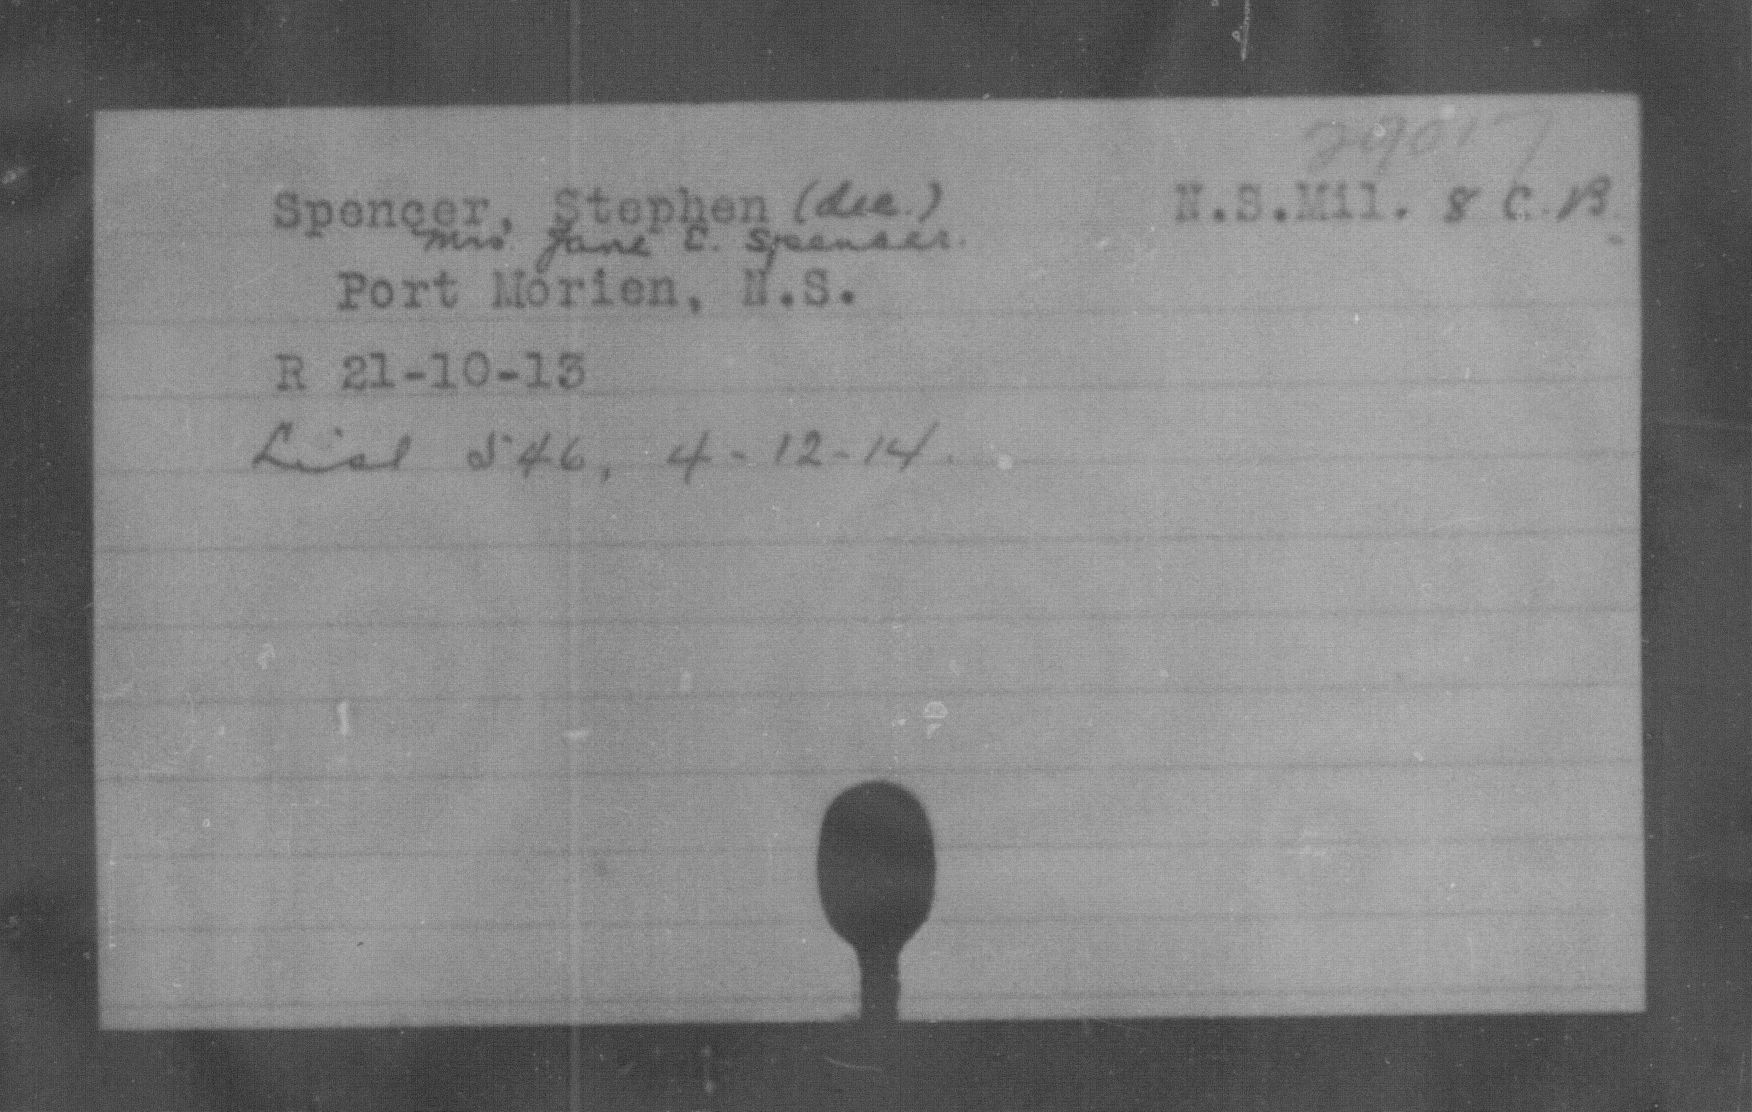 29017
Spencer, Stephen (dec.) N.S.Mil. 8 C.B.
Mrs Jane E. Spenser.
Port Morien, N.S.
R 21-10-13
List 546, 4-12-14.